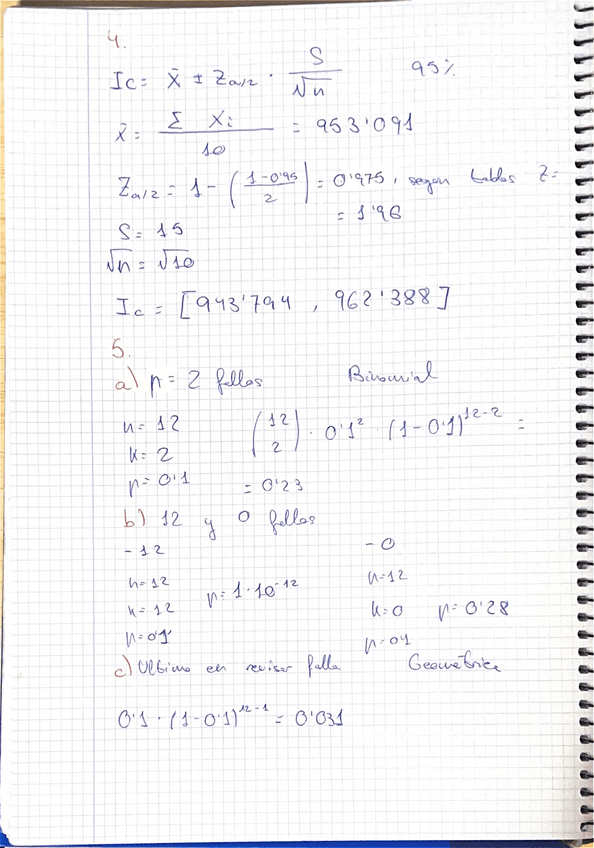 4.
Ic = x̄ ± Za/2 · S/√n 95%
x̄ = Σ Xi / 10 = 953'091
Za/2 = 1 - (1-0'95 / 2) = 0'975, segun tablas Z=
= 1'96
S = 15
√n = √10
Ic = [943'794 , 962'388]
5.
a) p = 2 fallos Binomial
n = 12 (12 2) · 0'1² · (1-0'1)^12-2 =
k = 2
p = 0'1 = 0'23
b) 12 y 0 fallos
- 12 - 0
n = 12 p = 1·10^-12 n = 12
k = 12 k = 0 p = 0'28
p = 0'1 p = 0'1
c) Ultimo en revisar falla Geométrica
0'1 · (1-0'1)^12-1 = 0'031